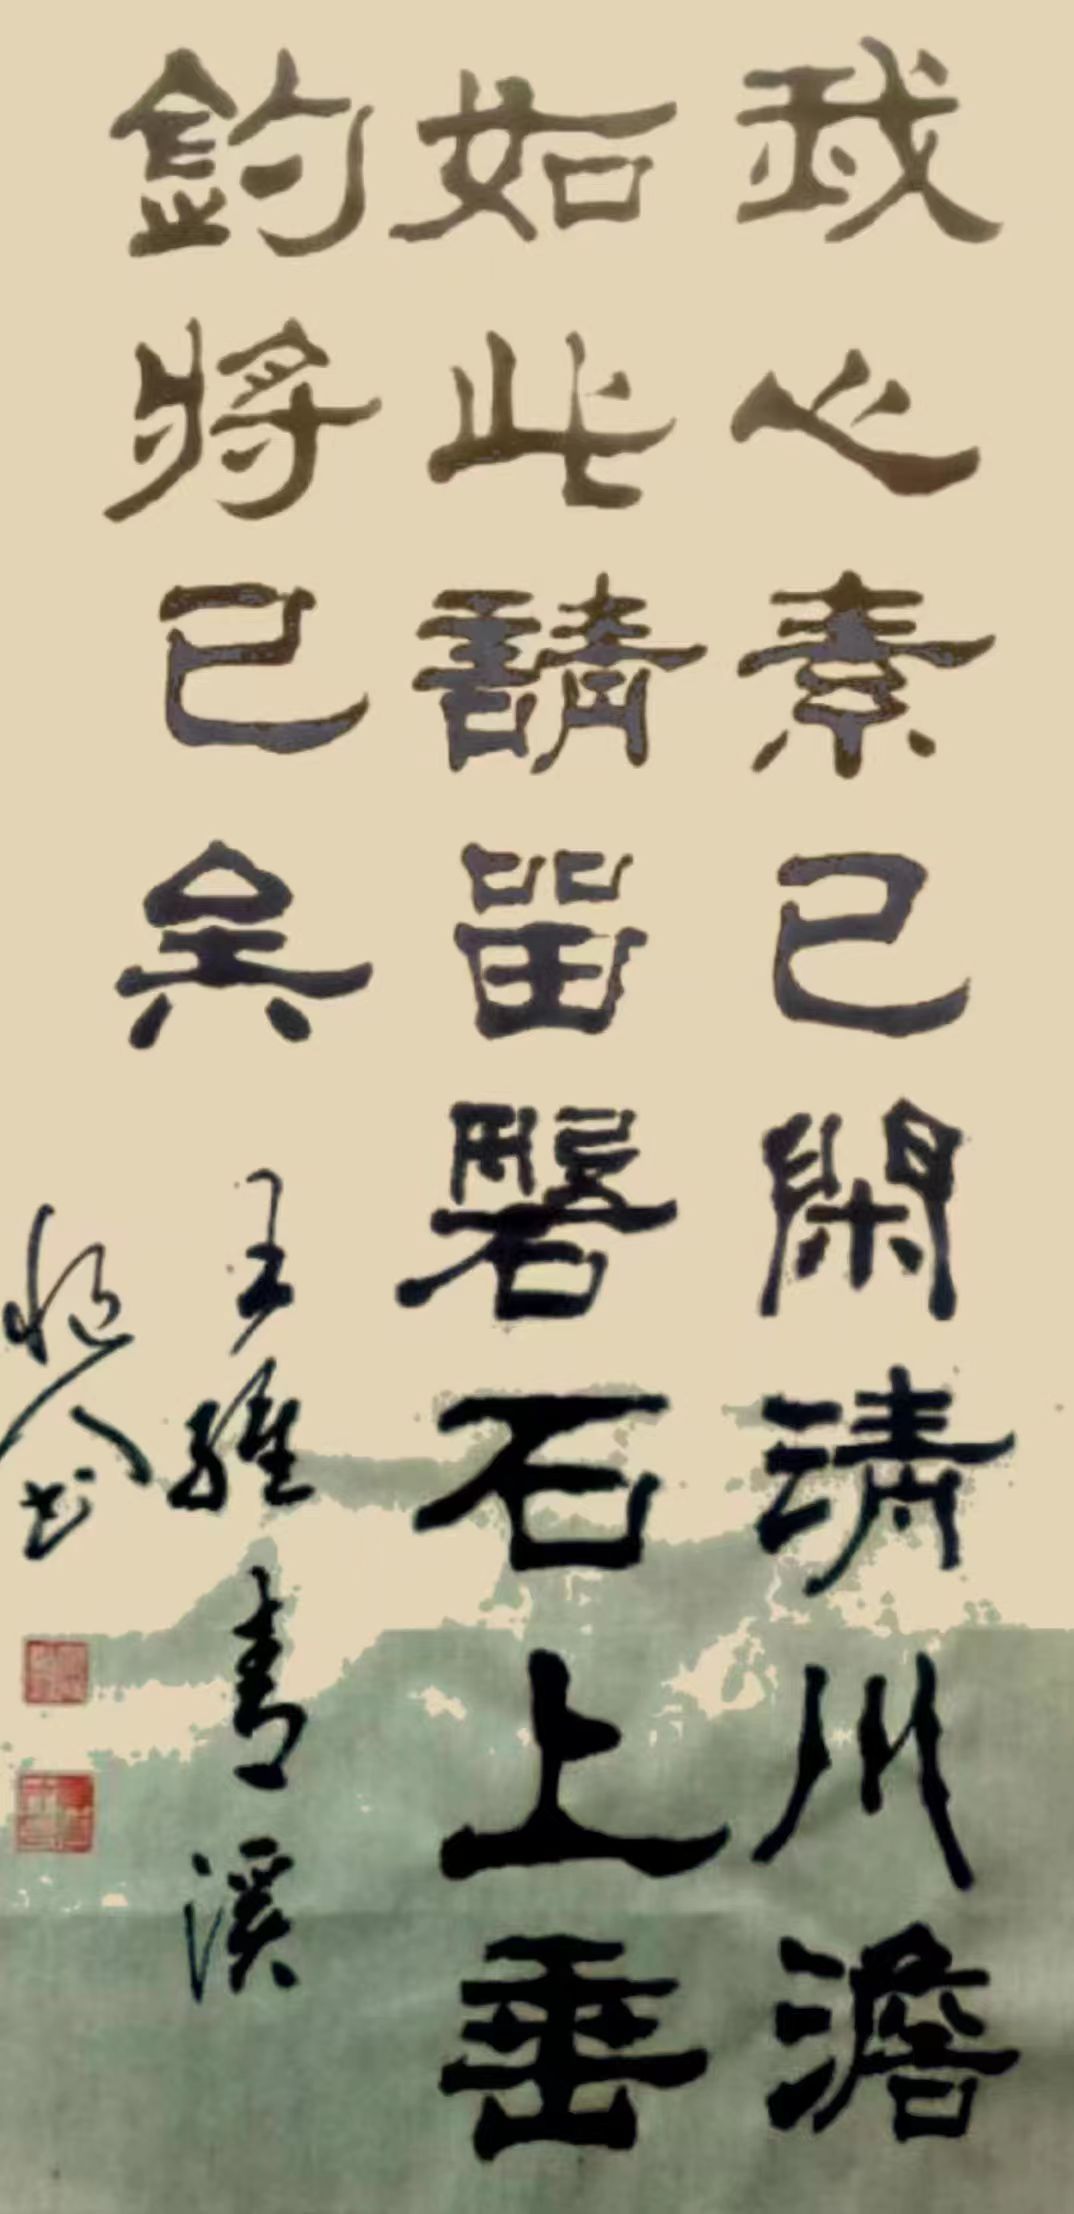 我心素已閑清川澹
如此請留磐石上垂
釣將已矣
王維青溪
书